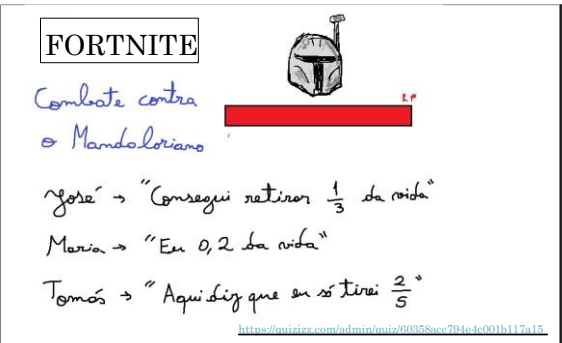 FORTNITE
Combate contra
o Mandaloriano
José → "Consegui retirar 1/3 da vida"
Maria → "Eu 0,2 da vida"
Tomás → "Aqui diz que eu só tirei 2/5"
https://quizizz.com/admin/quiz/60358acc794e4c001b117a15